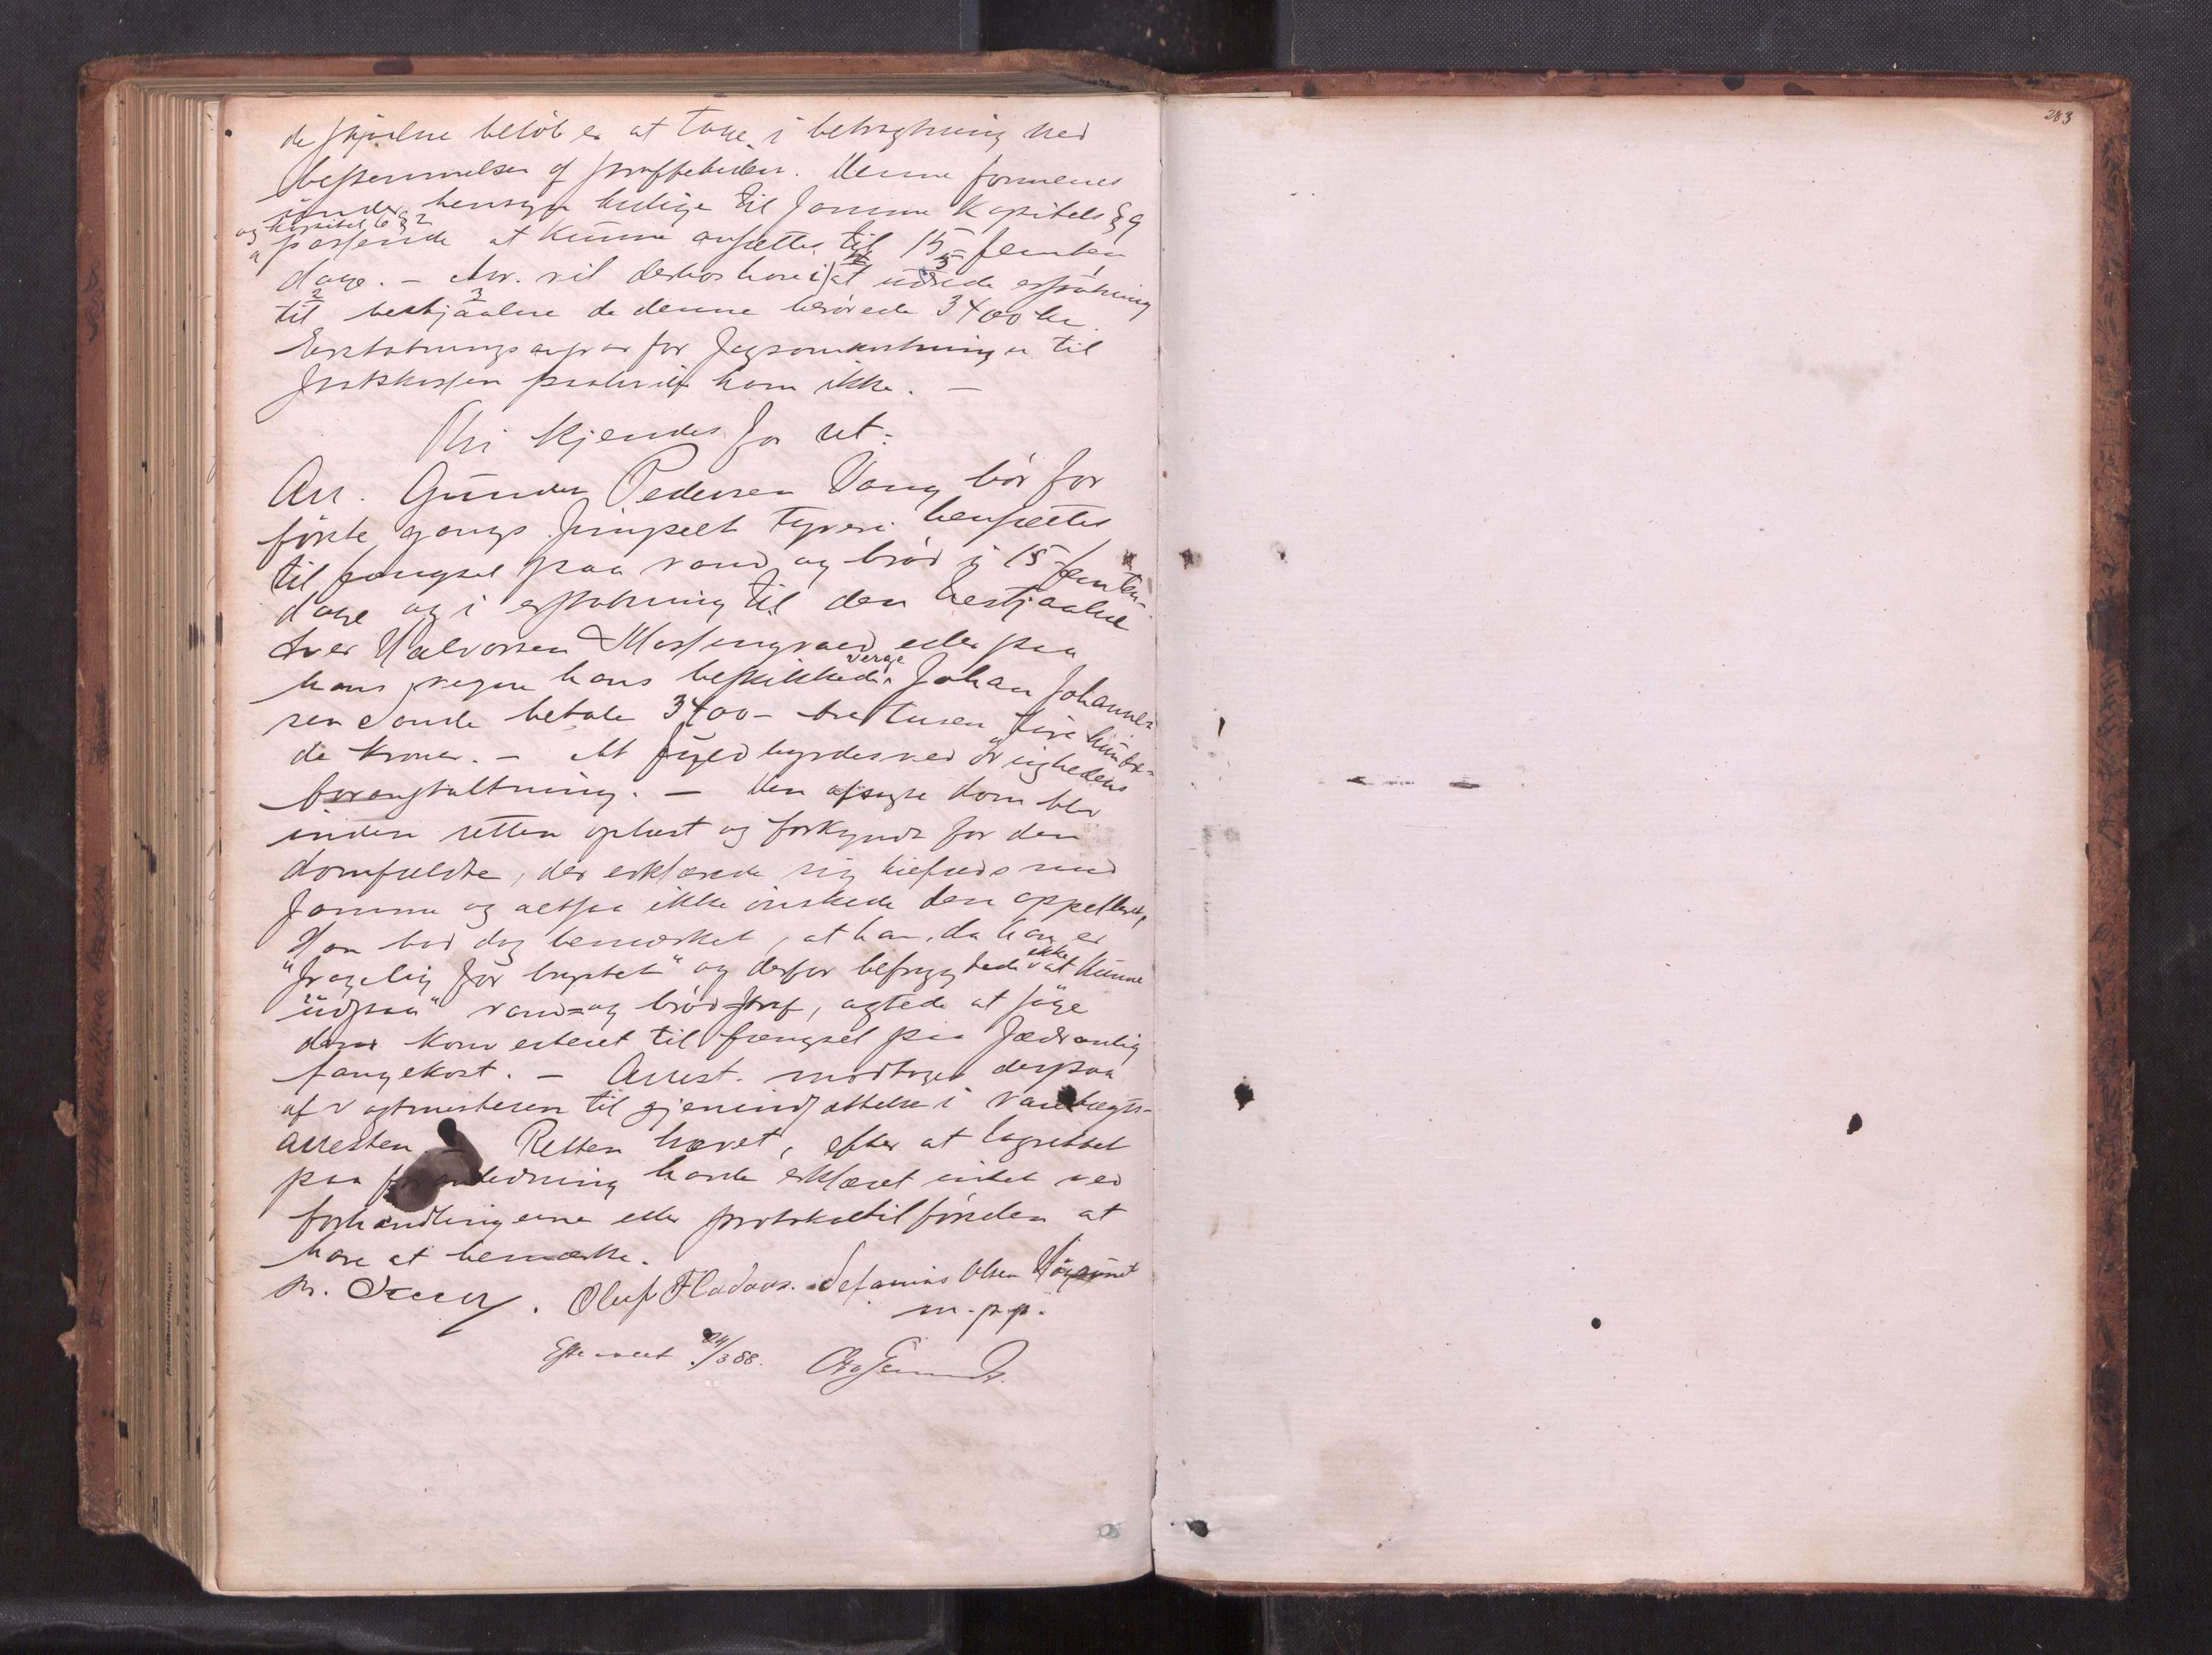 de stjaalne beløb er at tage i betragtning ved
bestemmelsen af straffetiden. Denne formenes
under hensyn tillige til samme kapitels § 9
og kapitel 6 § 2
passende at kunne ansættes til 15 - femten
dage. - Arr. vil derhos have at udrede erstatning
til bestjaalne de denne berøvede 3400 kr.
Erstatningsansvar for sagsomkostninger til
statskassen paahviler ham ikke. -
Thi kjendes for ret:
Arr. Gunder Pedersen Vang bør for
første gangs simpelt tyveri hensættes
til fængsel paa vand og brød i 15 - femten -
dage og i erstatning til den bestjaalne
Iver Halvorsen Mossengraed eller paa
hans vegne hans beskikkede verge Johan Johannes-
sen Sande betale 3400 - tre tusen fire hundre-
de kroner. - At fuldbyrdes ved øvrighedens
foranstaltning. - Den afsagte dom blev
inden retten oplæst og forkyndt for den
domfældte, der erklærede sig tilfreds med
samme og altsaa ikke ønskede den appelleret,
Han bad dog bemærket, at han, da han er
"svagelig før brystet" og derfor befrygtede ikke at kunne
"udstaa" vand- og brødstraf, agtede at søge
dom konverteret til fængsel paa sædvanlig
fangekost. - Arrest. modtoges derpaa
af vagtmesteren til gjenindsættelse i varetægts-
arresten. - Retten hævet, efter at lagrettet
paa foranledning havde erklæret intet ved
forhandlingerne eller protokoltilførselen at
have at bemærke.
Oluf Fladaas. Sefanias Olsen
m. p. p.
Efterseet 24/3 88.
283